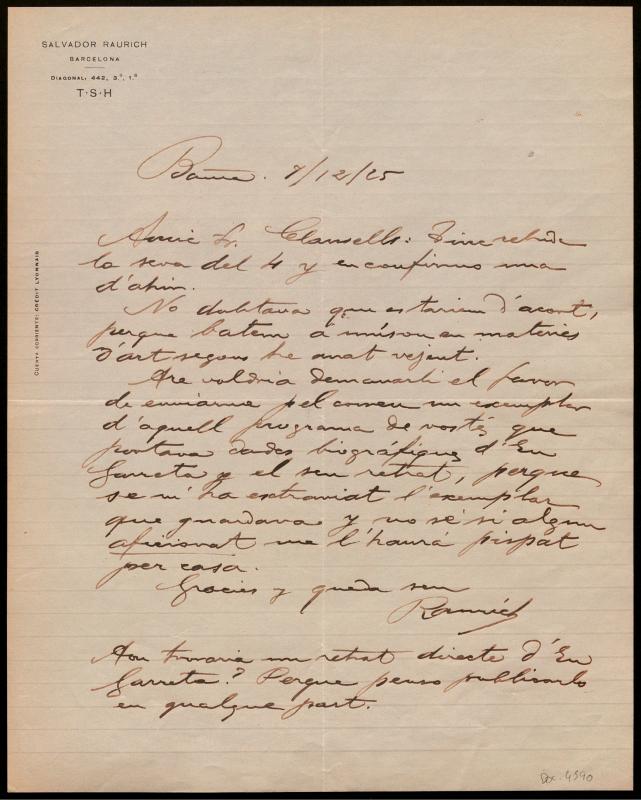 SALVADOR RAURICH
BARCELONA
DIAGONAL, 442, 3.º, 1.ª
T·S·H
CUENTA CORRIENTE: CRÉDIT LYONNAIS
Barna. 7/12/25
Amic Sr. Clausells: Tinc rebuda
la seva del 4 y en confirmo una
d'ahir.
No dubtava que estariem d'acort,
perque batem á unison en materies
d'art segons he anat vejent.
Are voldria demanarli el favor
de enviarme pel correu un exemplar
d'aquell programa de vostés que
portava dades biográfiques d'En
Garreta y el seu retrat, perque
se m'ha extraviat l'exemplar
que guardava y no sé si algun
aficionat me l'haurá pispat
per casa.
Gracies y queda seu
Raurich
Aon trovaria un retrat directe d'En
Garreta? Perque penso publicarlo
en qualque part.
Doc. 4990